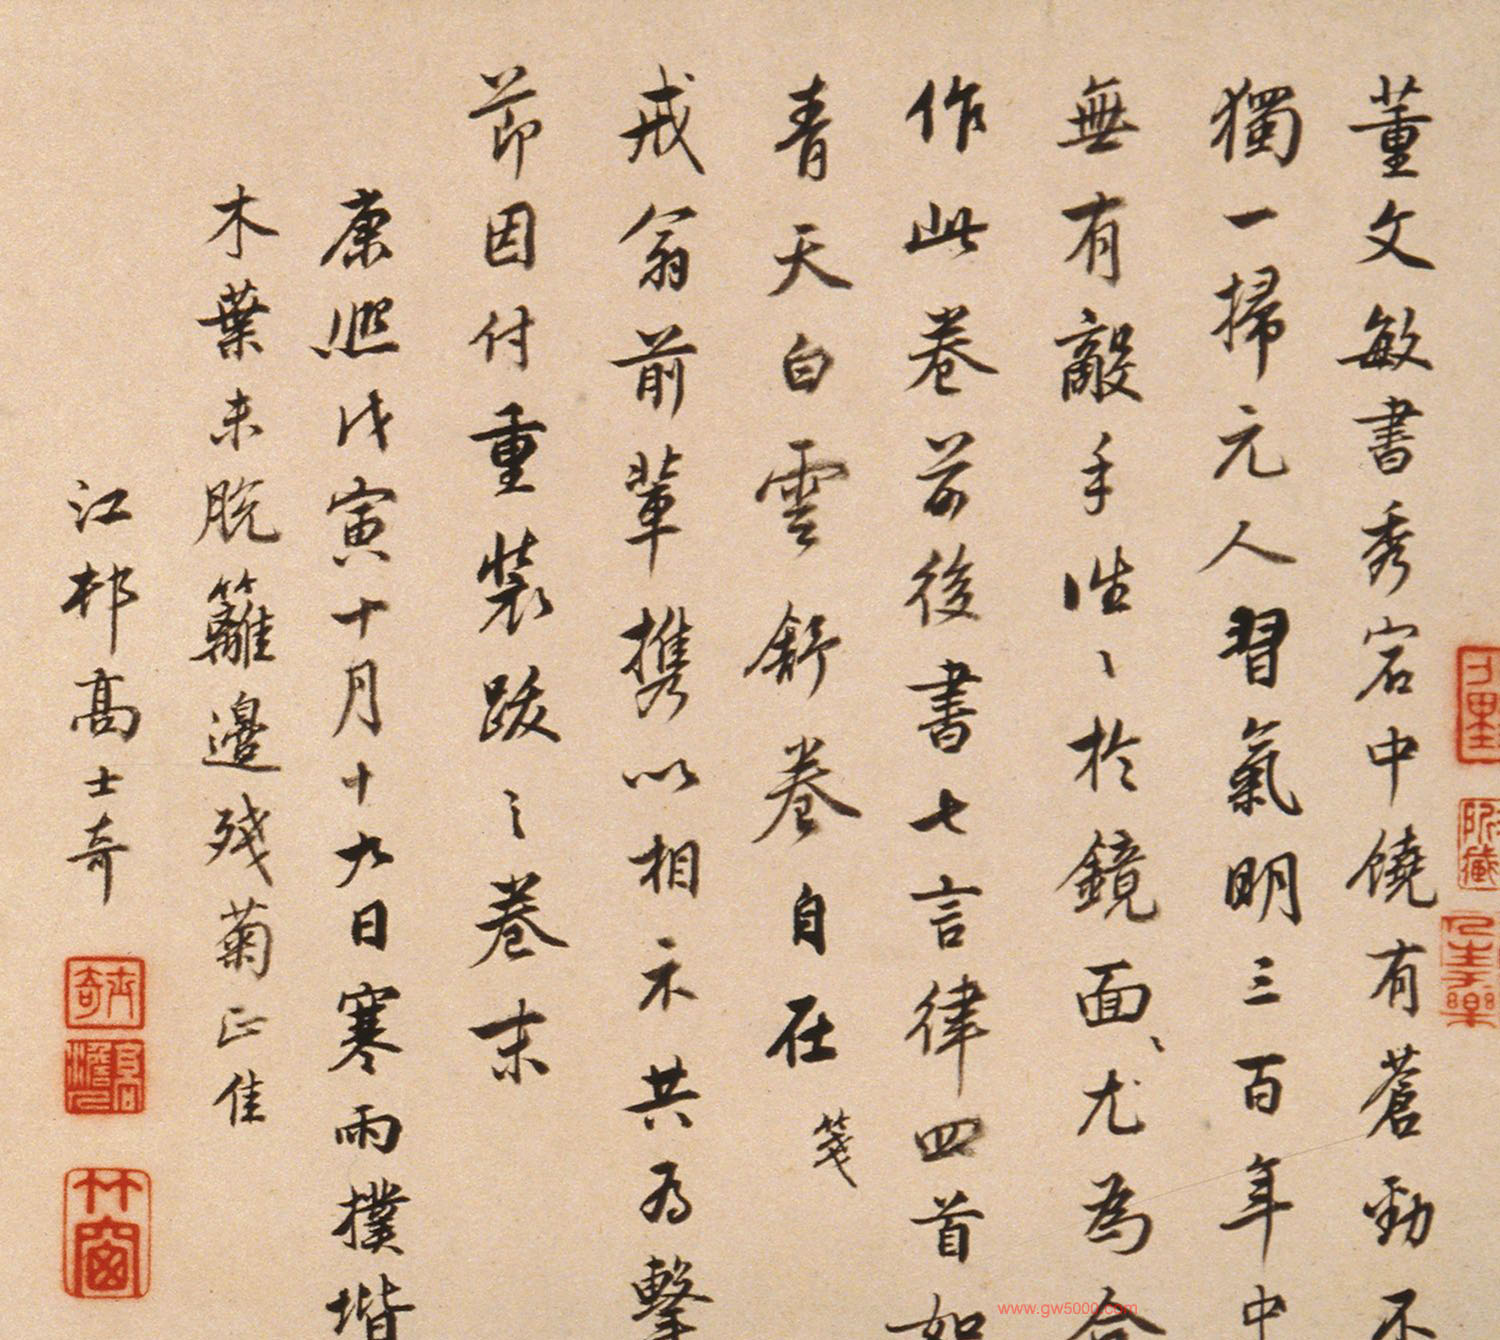 董文敏書秀宕中饒有蒼勁不
獨一掃元人習氣明三百年中
無有敵手性、於鏡面、尤為合
作此卷前後書七言律四首如
青天白雲舒卷自在
箋
戒翁前輩携以相示共為擊
節因付重裝跋之卷末
康熙戊寅十月十九日寒雨撲堦
木葉未脫籬邊殘菊正佳
江邨高士奇
士奇
高澹人
竹窗
www.gw5000.com